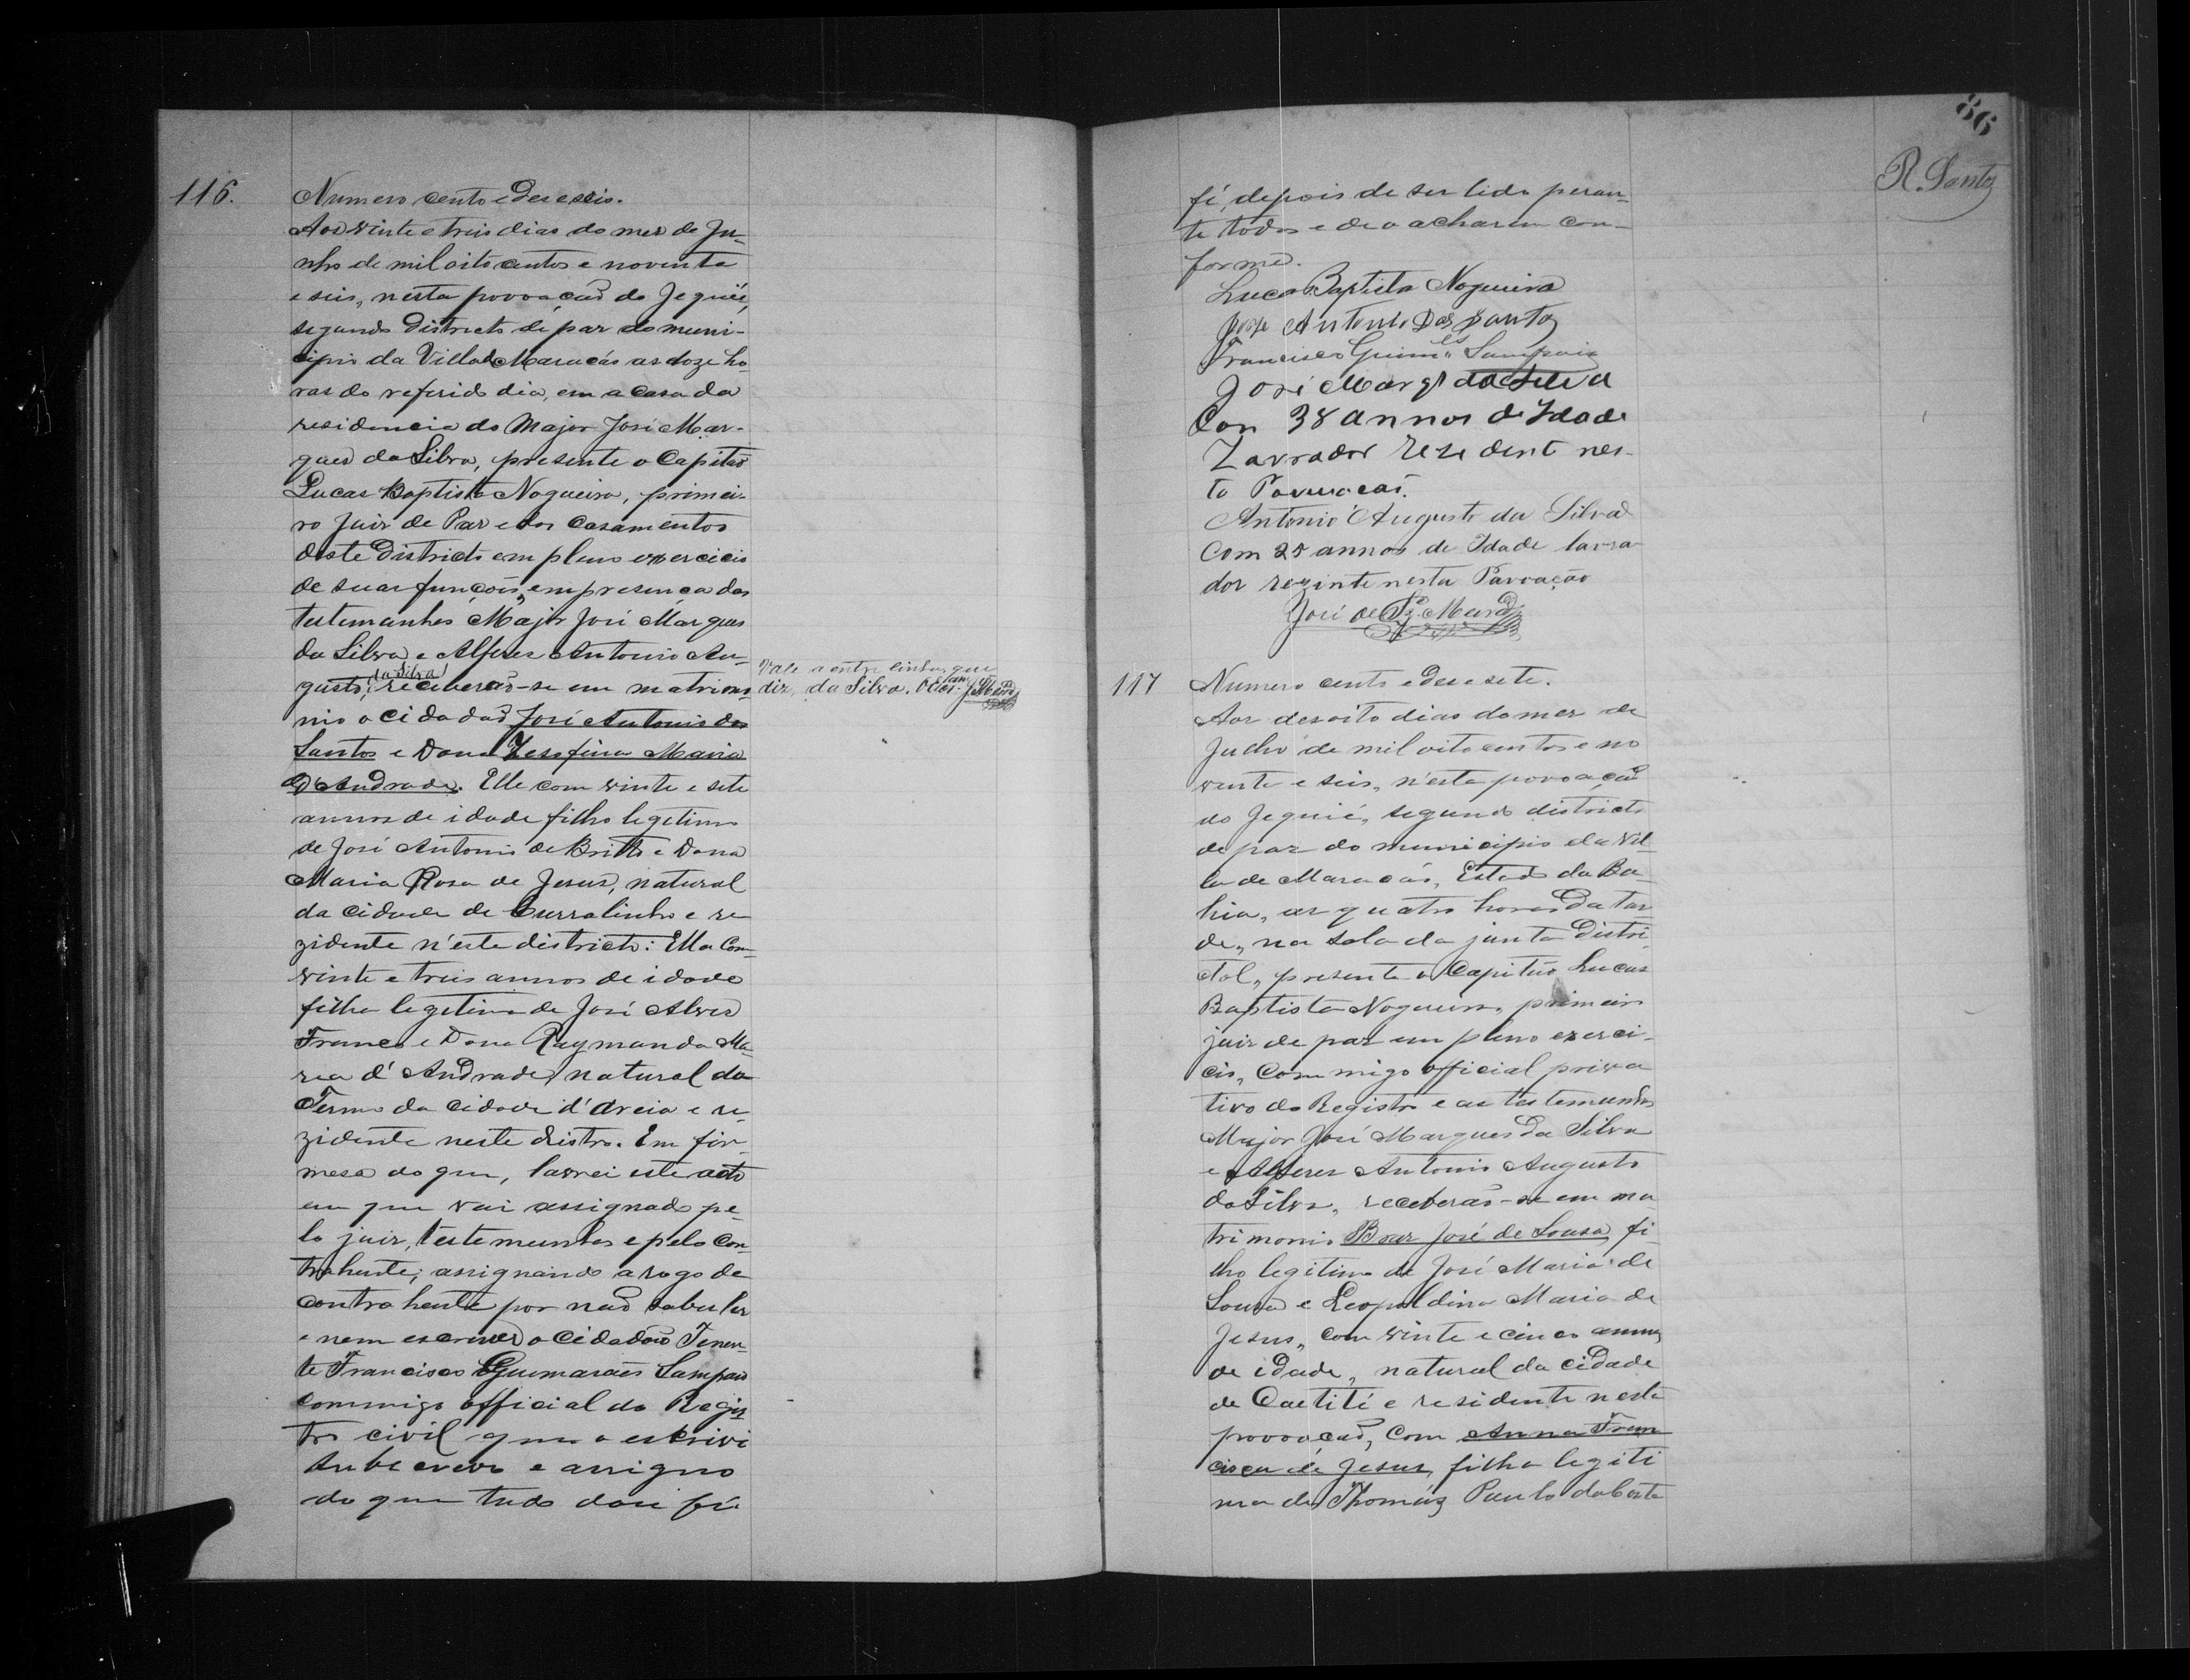 116.
Numero cento e deseseis.
Aos vinte e treis dias do mes de Ju-
nho de mil oito centos e noventa
e seis, nesta povoação do Jequié,
segundo Districto de paz do muni-
cipio da Villa de Maracás as doze ho-
ras do referido dia, em a casa da
residencia do Major José Mar-
ques da Silva, presente o Capitão
Lucas Baptista Nogueira, primei-
ro Juiz de Paz e dos Casamentos
deste Districto em pleno exercicio
de suas funções, em presença das
testemunhas Major José Marques
da Silva e Alferes Antonio Au-
gusto, da Silva receberão-se em matrimo
nio o cidadão José Antonio dos
Santos e Dona Zesofina Maria
d'Andrade. Elle com vinte e sete
annos de idade filho legitimo
de José Antonio de Britto e Dona
Maria Rosa de Jesus, natural
da cidade de Curralinho e re
zidente n'este districto: Ella Com
vinte e treis annos de idade
filha legitima de José Alves
Franco e Dona Raymunda Ma-
ria d'Andrade, natural do
Termo da Cidade d'Areia e re-
zidente neste distro. Em fir-
mesa do que, lavrei este acto
em que vai assignado pe-
lo juiz, testemunhas e pelo Con
trahente; assignando a rogo da
contrahente por não saber ler
e nem escrever o Cidadão Tenen-
te Francisco Guimarães Sampaio
commigo official do Regis
tro civil que o escrivi
subscrevo e assigno
do que tudo dou fé
Vale a entre linha que
diz, da Silva.
86
R. Santos
fé, depois de ser lido peran-
te todos e de o acharem con-
forme.
Lucas Baptista Nogueira
José Antonio Dos Santos
Francisco Guim.es Sampaio
José Marqs da Silva
Con 38 annos de Idade
Lavrador Rezedent nes-
ta Povuacaõ.
Antonio Augusto da Silva
Com 25 annos de Idade lavra
dor rezinte nesta Pavoação
José de
117
Numero cento e desesete.
Aos desoito dias do mes de
Julho de mil oito centos e no
venta e seis, n'esta povoação
do Jequié, segundo districto
de paz do municipio da Vil
la de Maracás, Estado da Ba
hia, as quatro horas da tar
de, na sala da junta Distri
ctal, presente o Capitão Lucas
Baptista Nogueira, primeiro
juiz de paz em pleno exerci-
cio, Commigo official priva
tivo do Registro e as testemunhas
Major José Marques da Silva
e Alferes Antonio Augusto
da Silva, receberão-se em ma
trimonio Braz José de Sousa, fi
lho legitimo de José Maria de
Sousa e Leopoldina Maria de
Jesus, com vinte e cinco annos
de idade, natural da cidade
de Caetité e residente nesta
povoação, Com Anna Fran
cisca de Jesus, filha legiti
ma de Thomáz Paulo da Costa